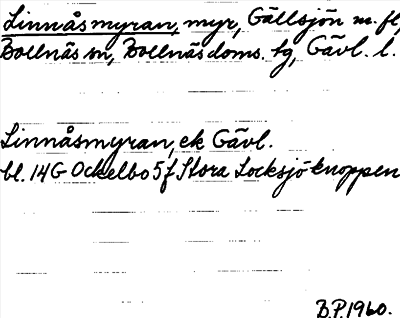 Linnåsmyran, myr, Gällsjön m. fl,
Bollnäs sn, Bollnäs doms. tg, Gävl. l.
Linnåsmyran, ek Gävl.
bl. 14G Ockelbo 5f Stora Locksjöknoppen
B.P. 1960.